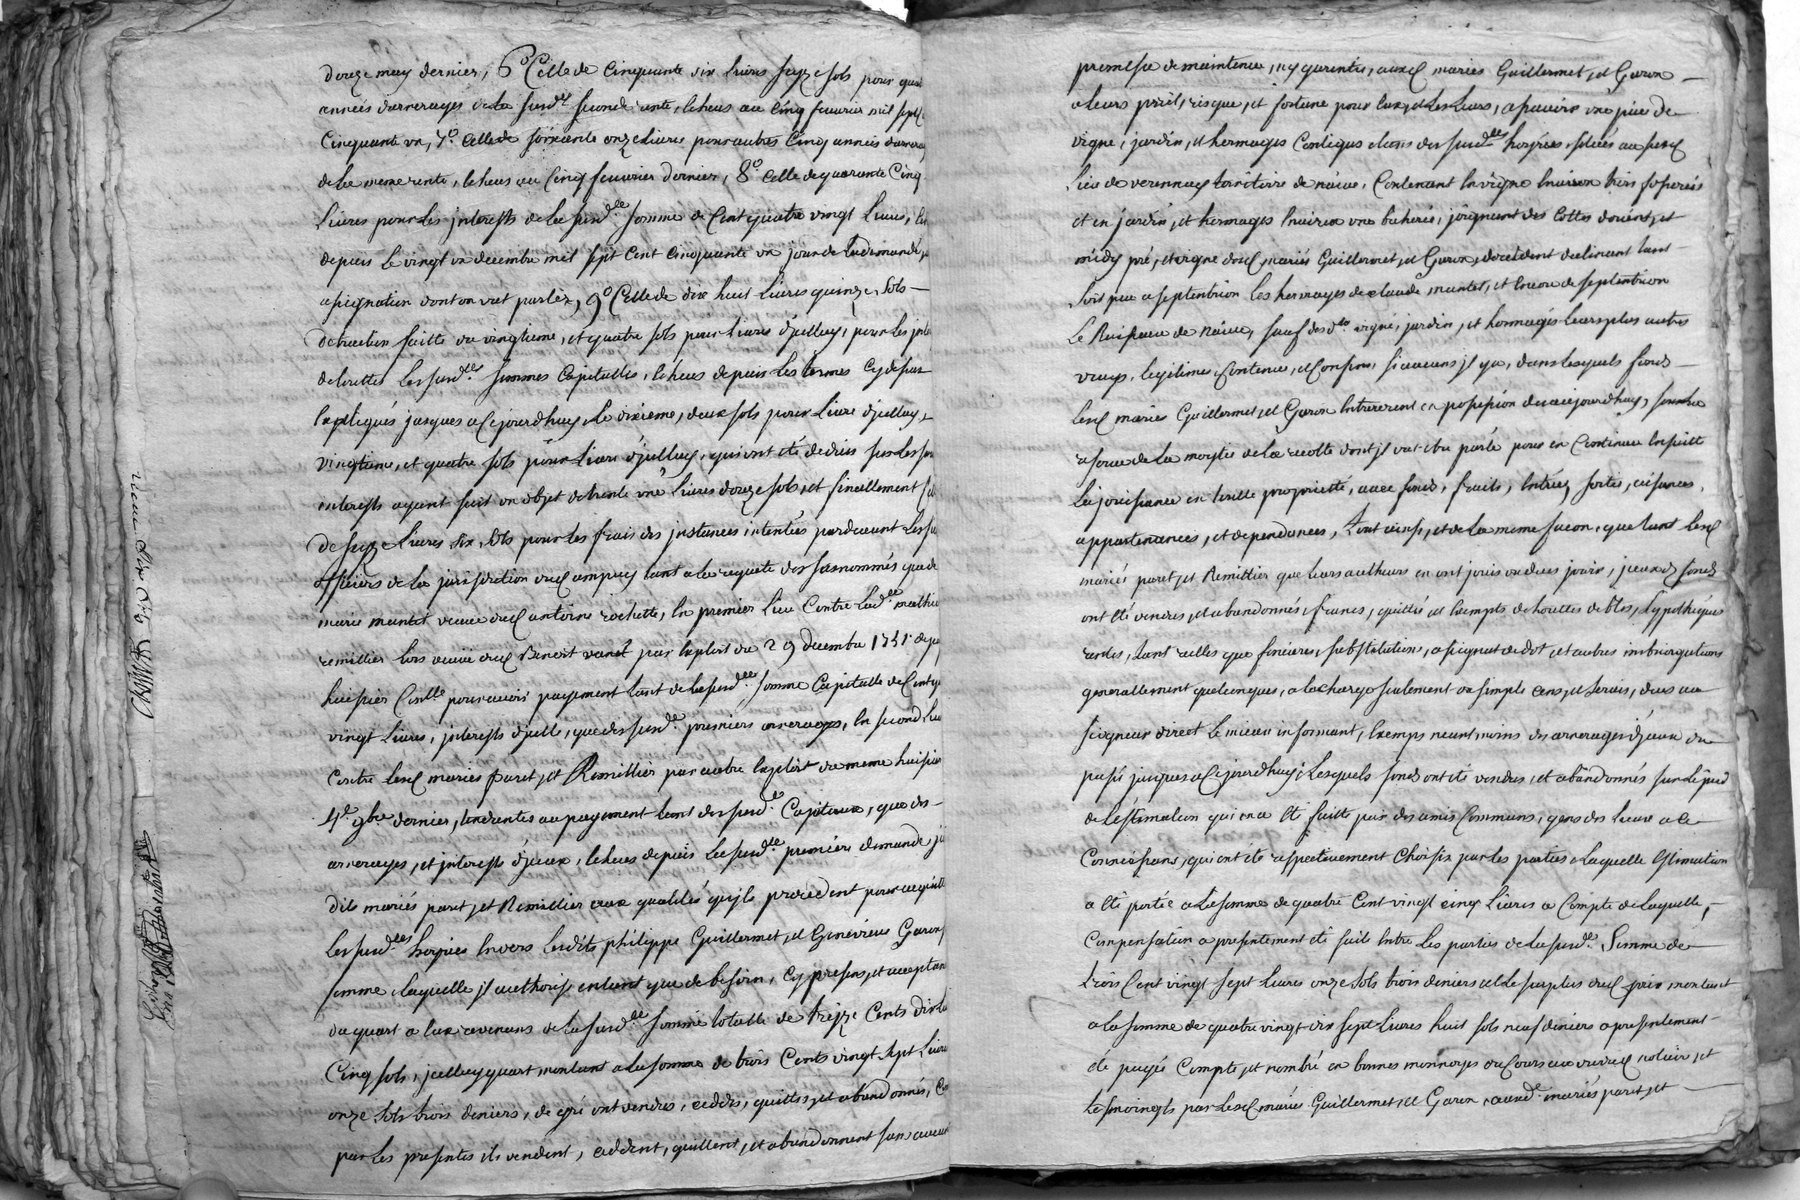 douze may dernier, 6º Celle de Cinquante six livres seize sols pour
années darrerages de la susd.te seconde rente, échus au Cinq feuvrier mil sept
Cinquante un, 7º Celle de soixante onze livres pour autres Cinq années
de la meme rente, échus au Cinq feuvrier dernier, 8º Celle de quarante Cinq
livres pour les jnterests de la susd.lle somme de Cent quatre vingt livres,
depuis le vingt un decembre mil sept Cent Cinquante un jour de la demande,
assignation dont on vat parler, 9º Celle de dix huit livres quinze sols
detraction faitte du vingtieme, et quatre sols pour livre d'jcelluy, pour les
de touttes les susd.tes sommes Capitalles, échus depuis les termes Cy dessus
Expliqués jusques a Cejourdhuy, le dixieme, deux sols pour livre d'jcelluy,
vingtieme, et quatre sols pour livre d'jcelluy, qui ont été deduis sur les
jnterests ayant fait un objet de trente une livres douze sols, et finallement
de seize livres six sols pour les frais des jnstances intentées pardevant les
officiers de la jurisdiction tant a la requete des sasnommés que de
marie mantet veuve antoine rochette, En premier lieu Contre lad.te mathie
remillier lors veuve Benoit par Exploit du 29 decembre 1751
huissier pour avoir payement tant de la susd.te somme Capitalle de Cent
vingt livres, jnterests d'jcelle, que des susd.ts premiers arrerages, En second lieu
Contre les mariés paret, et Remillier par autre Exploit du meme huissier
9bre dernier, tendantes au payement tant des susd.ts Capitaux, que des
arrerages, et jnterests d'jceux, échus depuis la susd.te premiere demande,
dits mariés paret, et Remillier aux qualités qu'jls procedent pour
les susd.tes hoiries Envers lesdits philippe Guillermet, et Genevieve Garon
femme, laquelle jl authorise entant que de besoin, Cy presens, et acceptans
du quart a Eux avenans de la susd.te somme totalle de treize Cents
Cinq sols, jcelluy quart montant a la somme de trois Cents vingt sept livres
onze sols trois deniers, de gré ont vendus, ceddés, quittés, et abandonnés,
par les presentes ils vendent, ceddent, quittent, et abandonnent sans
promesse de maintenue, ny garentie, auxd. mariés Guillermet, et Garon
a leurs peril, risque, et fortune pour Eux, et les leurs, a scavoir une piece de
vigne, jardin, et hermages Contigus dans des susd.tes hoiries, situés au susd.
lieu de verennay territoire de néaux, Contenant la vigne Environ trois
et en jardin, et hermages Environ une bicherée, joignant des Cottes d'orient, et
midy pré, et vigne desd. mariés Guillermet, et Garon, d'occident declinant tant
soit peu a septentrion les hermages de claude mantet, et encore de septentrion
le Ruisseau de néaux, sauf desd.ts vigne, jardin, et hermages leurs plus autres
vrays, legitimes Contenue, et Confins, si aucuns jl y a, dans lesquels fonds
lesd. mariés Guillermet, et Garon Entrerent en possession dez aujourdhuy,
reserve de la moytié de la recolte dont jl vat etre parlé pour en Continuer Ensuitte
la jouissance en toutte proprietté, avec fonds, fruits, Entrées, sorties, aisances,
appartenances, et dependances, tout ainsi, et de la meme facon, que tant lesd.
mariés paret, et Remillier que leurs autheurs en ont jouis ou deus jouir, jceux d. fonds
ont été vendus, et abandonnés, francs, quittes et Exempts de touttes dettes, hypotheques
rentes, tant reelles que foncieres, substitution, assignat de dot, et autres imbriquations
generallement quelconques, a la charge seulement du simple cens, et servis, deus au
seigneur direct le mieux informant, Exemps neantmoins des arrerages d'jceux du
passé jusques a Cejourdhuy; lesquels fonds ont été vendus, et abandonnés sur le pied
de l'éstimation qui en a été faitte par des amis Communs, gens des lieux a ce
Connoissans, qui ont été respectivement Choisis par les parties, laquelle Estimation
a été portée a la somme de quatre Cent vingt cinq livres a Compte de laquelle,
Compensation a presentement été fait Entre les parties de la susd.te Somme de
trois Cent vingt sept livres onze sols trois deniers, et le surplus dud. prix montant
a la somme de quatre vingt dix sept livres huit sols neuf deniers a presentement
été payée Compté, et nombré en bonnes monnoyes du Cours aux vu d. notaire, et
tesmoingts par lesd. mariés Guillermet, et Garon, auxd. mariés paret, et